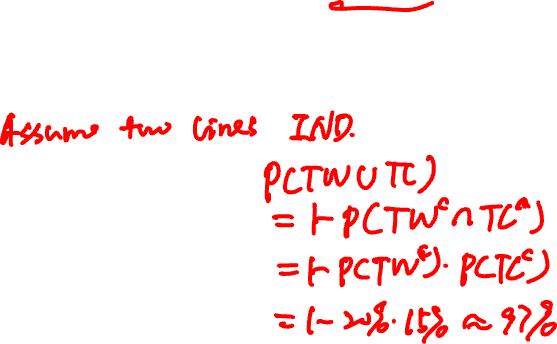 Assume two lines IND.
P(TW∪TC)
= 1-P(TWᶜ∩TCᶜ)
= 1-P(TWᶜ)·P(TCᶜ)
= 1-20%·15% ≈ 97%